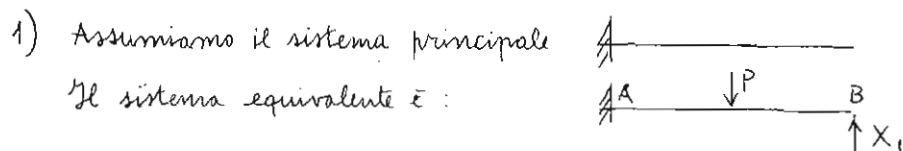 1) Assumiamo il sistema principale
Il sistema equivalente è :
A P B
X₁